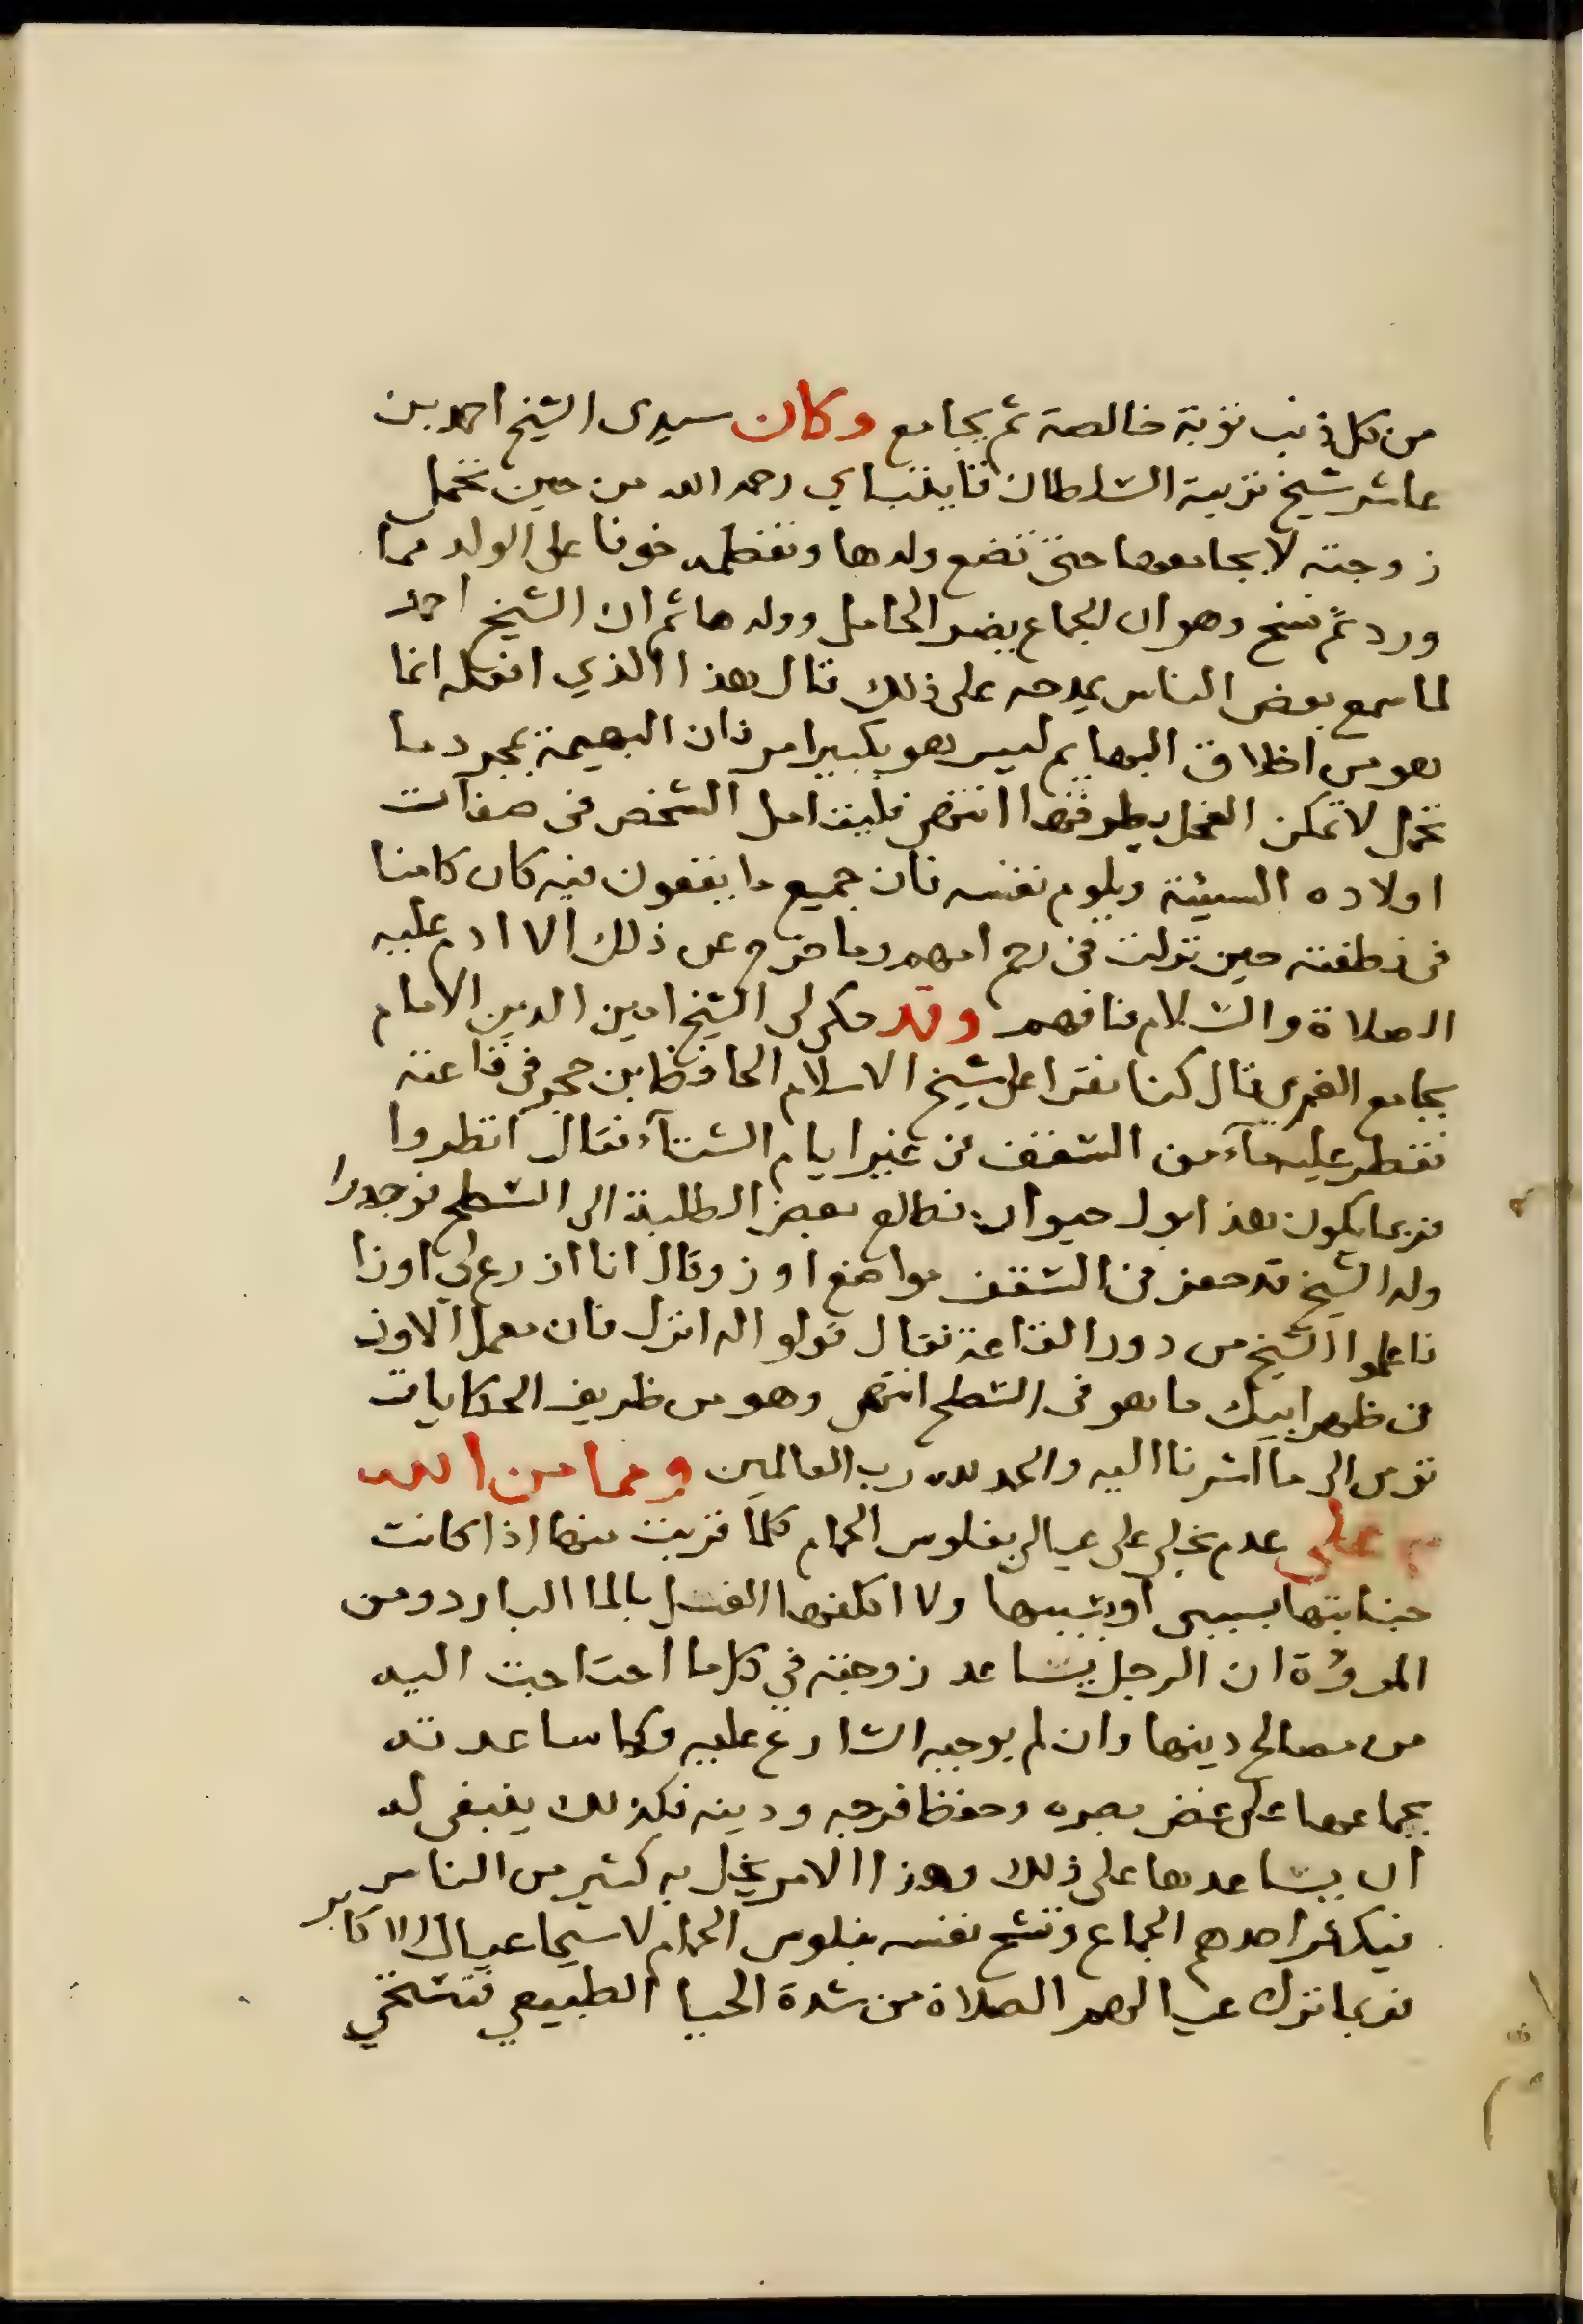 من كل ذنب توبة خالصة ثم يجامع وكان سيدى الشيخ احمد بن
عاشر شيخ تربية السلطان قايتباي رحمه الله من حين تحمل
زوجته لا يجامعها حتى تضع ولدها وتفطمه خوفا على الولد مما
ورد ثم نسخ وهو ان الجماع يضر الحامل وولدها ثم ان الشيخ احمد
لما سمع بعض الناس يمدحه على ذلك قال هذا الذي افعله انما
هو من اخلاق البهايم ليس هو بكبير امر فان البهيمة بمجرد ما
تحمل لا تمكن الفحل يطرقها انتهى فليتامل الشخص فى صفات
اولاده السيئة ويلوم نفسه فان جميع ما يقعون فيه كان كامنا
فى نطفته حين نزلت فى رحم امهم وما خرج عن ذلك الا ادم عليه
الصلاة والسلام فافهم وقد حكى لى الشيخ امين الدين الامام
بجامع الغمرى قال كنا نقرا على شيخ الاسلام الحافظ ابن حجر فى قاعته
فقطر عليه ماء من السقف فى غير ايام الشتاء فقال انظروا
فربما يكون هذا بول حيوان فطالع بعض الطلبة الى السطح فوجدوا
ولد الشيخ قد حفر فى السقف مواضع اوز وقال انا ازرع لى اوزا
فاعلموا الشيخ من دور القاعة فقال قولوا له انزل فان معمل الاوز
فى ظهر ابيك ما هو فى السطح انتهى وهو من ظريف الحكايات
تومى الى ما اشرنا اليه والحمد لله رب العالمين ومما من الله
به على عدم بخلى على عيالى بفلوس الحمام كلما قربت منها اذا كانت
جنابتها بسببى او بسببها ولا اكلفها الغسل بالماء البارد ومن
المروّة ان الرجل يساعد زوجته في كل ما احتاجت اليه
من مصالح دينها وان لم يوجبه الشارع عليه وكما ساعدته
بجماعها على غض بصره وحفظ فرجه ودينه فكذلك ينبغى له
ان يساعدها على ذلك وهذا الامر يخل به كثير من الناس
فيكثر احدهم الجماع وتشح نفسه بفلوس الحمام لا سيما عيال الاكابر
فربما تترك عيالهم الصلاة من شدة الحيا الطبيعي فتستحي